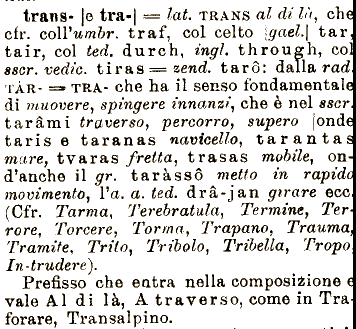 trans- [e tra-] = lat. TRANS al di là, che
cfr. coll'umbr. traf, col celto [gael.] tar,
tair, col ted. durch, ingl. through, col
sscr. vedic. tiras = zend. tarô: dalla rad.
TAR- = TRA- che ha il senso fondamentale
di muovere, spingere innanzi, che è nel sscr.
tarâmi traverso, percorro, supero [onde
taris e taranas navicello, tarantas
mare, tvaras fretta, trasas mobile, on-
d'anche il gr. taràssô metto in rapido
movimento, l'a. a. ted. drâ-jan girare ecc.
(Cfr. Tarma, Terebratula, Termine, Ter-
rore, Torcere, Torma, Trapano, Trauma,
Tramite, Trito, Tribolo, Tribella, Tropo,
In-trudere).
Prefisso che entra nella composizione e
vale Al di là, A traverso, come in Tra-
forare, Transalpino.